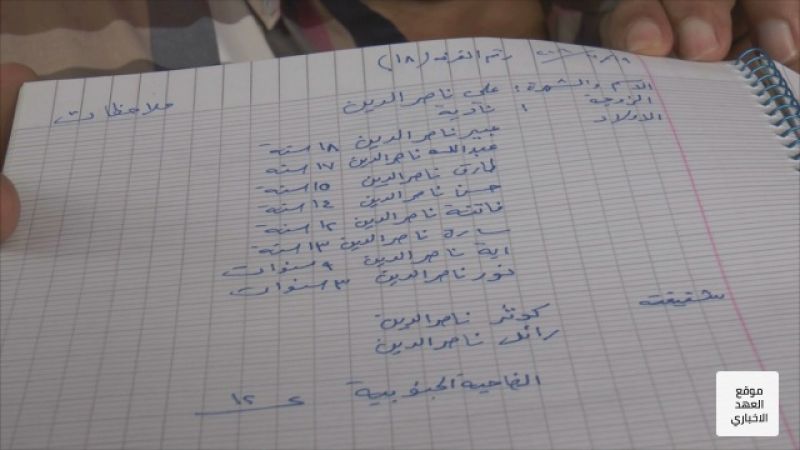 رقم الغرفة (١٨)
الاسم والشهرة: علي ناصر الدين
ملاحظات
الزوجة : نادية
الاولاد
عبير ناصر الدين ١٨ سنة
عبدالله ناصر الدين ١٧ سنة
طارق ناصر الدين ١٥ سنة
حسن ناصر الدين ١٤ سنة
فاتنة ناصر الدين ١٢ سنة
سارة ناصر الدين ١٣ سنة
اية ناصر الدين ٩ سنوات
نور ناصر الدين ٣ سنوات
شقيقته
كوثر ناصر الدين
ناصر الدين
الضاحية الجنوبية ع ١٢
موقع
العهد
الاخباري